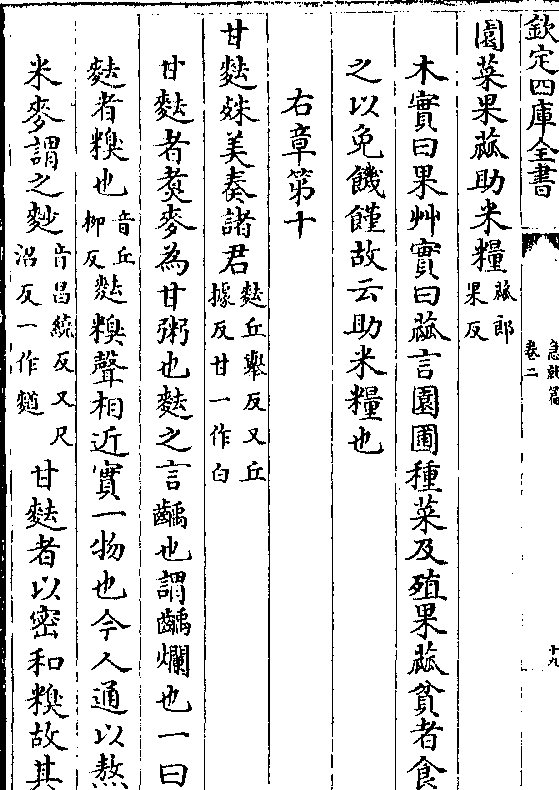 欽定四庫全書
急就篇
卷二
十九
園菜果蓏助米糧蓏郎果反
木實曰果艸實曰蓏言園圃種菜及殖果蓏貧者食
之以免饑饉故云助米糧也
右章第十
甘麩殊美奏諸君麩丘舉反又丘據反甘一作白
甘麩者煑麥為甘粥也麩之言齲也謂齲爛也一曰
麩者糗也音丘柳反麩糗聲相近實一物也今人通以熬
米麥謂之麨音昌繞反又尺沼反一作䵵甘麩者以密和糗故其